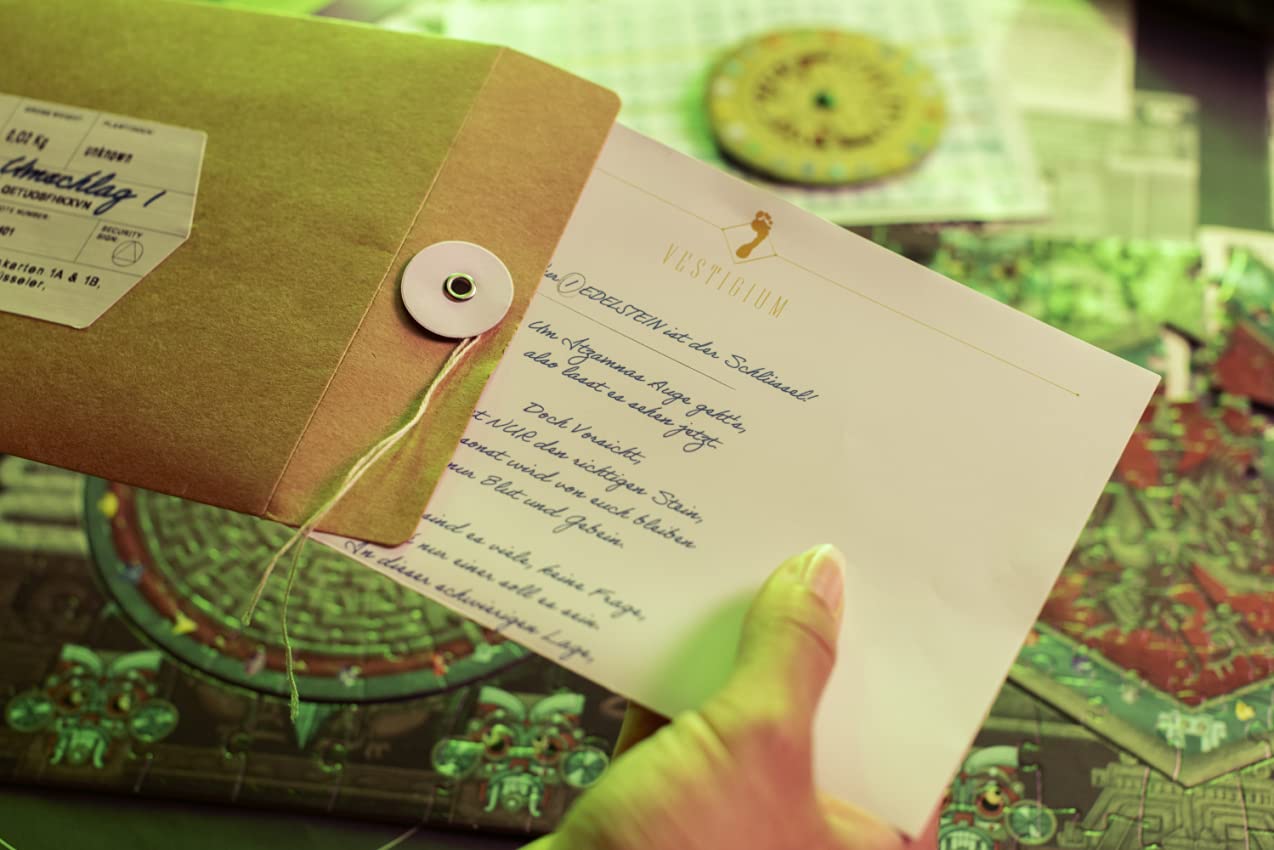 0,02 Kg
unknown
Umschlag 1
SECURITY
SIGN:
1A & 1B,
VESTIGIUM
1 EDELSTEIN ist der Schlüssel!
Um Atzamnas Auge geht's,
also lasst es sehen jetzt
Doch Vorsicht,
NUR den richtigen Stein,
sonst wird von euch bleiben
nur Blut und Gebein.
sind es viele, keine Frage,
nur einer soll es sein.
In dieser schwierigen Lage,